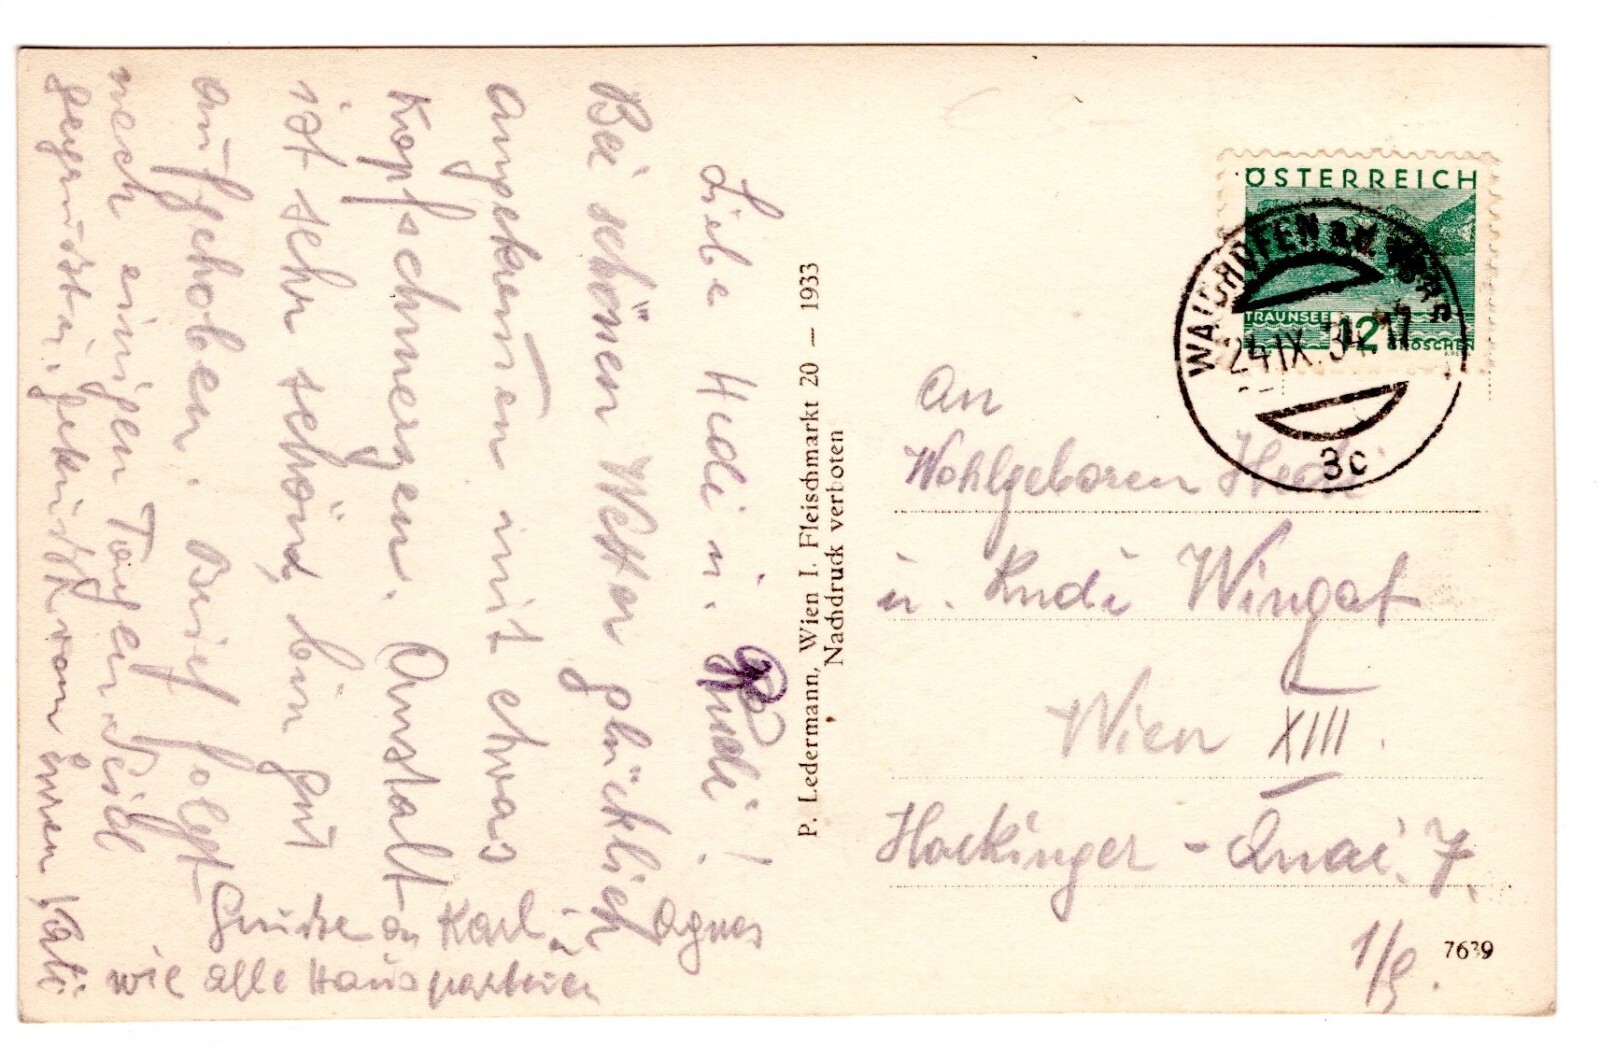 Liebe Hedi u. Rudi!
Bei schönen Wetter glücklich
angekommen mit etwas
Kopfschmerzen. Anstalt
ist sehr schön, bin gut
aufgehoben. Brief folgt
nach einigen Tagen. Seid
gegrüsst u. geküsst von euren Vati
Grüsse an Karl u. Agnes
wie alle Hausparteien
P. Ledermann, Wien I. Fleischmarkt 20 — 1933
Nachdruck verboten
ÖSTERREICH
TRAUNSEE 12 GROSCHEN
WAIDHOFEN a.d. YBBS
24.IX.34.17
3c
An
Wohlgeboren Hedi
u. Rudi Wingat
Wien XIII.
Hackinger-Quai. 7.
1/9.
7639